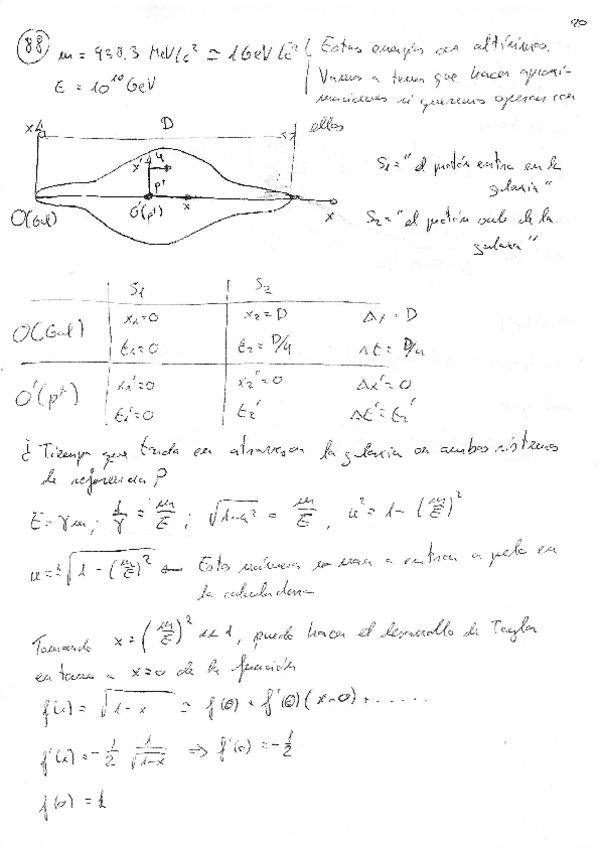 20
88
m = 938.3 MeV/c² ≃ 1 GeV/c²
E = 10¹⁰ GeV
Estas energías son altísimas.
Vamos a tener que hacer aproxi-
maciones si queremos operar con
ellas
D
x
x'
u
p⁺
O(Gal)
O'(p⁺)
x
x
S₁ = "el protón entra en la
galaxia"
S₂ = "el protón sale de la
galaxia"
S₁ S₂
O(Gal) x₁=0 x₂=D Δx=D
t₁=0 t₂=D/u Δt=D/u
O'(p⁺) x₁'=0 x₂'=0 Δx'=0
t₁'=0 t₂' Δt'=t₂'
¿Tiempo que tarda en atravesar la galaxia en ambos sistemas
de referencia?
E=γm; 1/γ = m/E; √(1-u²) = m/E, u² = 1-(m/E)²
u = √(1-(m/E)²) ← Estos números no van a entrar a pelo en
la calculadora
Tomando x = (m/E)² ≪ 1, puedo hacer el desarrollo de Taylor
en torno a x=0 de la función
f(x) = √(1-x) ≃ f(0) + f'(0)(x-0)+......
f'(x) = -1/2 1/√(1-x) ⇒ f'(0) = -1/2
f(0) = 1